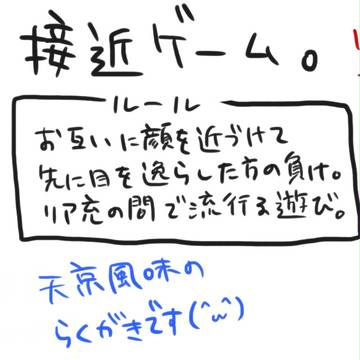 接近ゲーム。
ルール
お互いに顔を近づけて
先に目を逸らした方の負け。
リア充の間で流行る遊び。
天京風味の
らくがきです(^ω^)